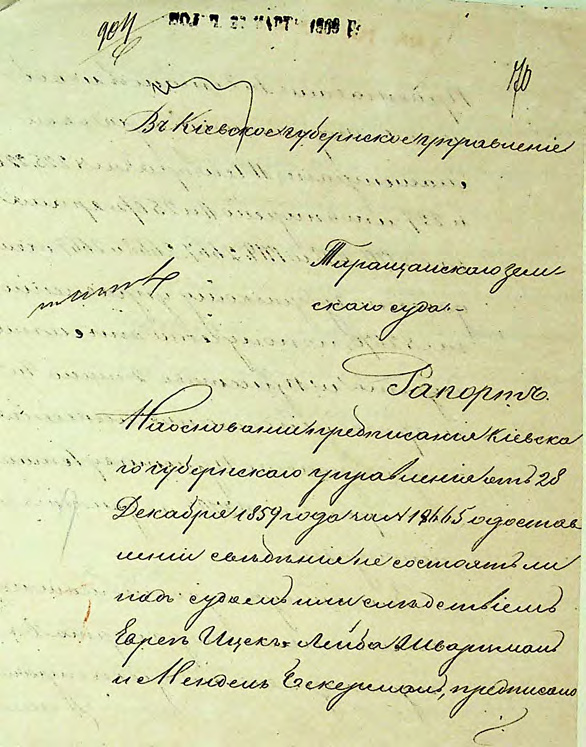 904
170
Въ Кіевское губернское управленіе
Таращанскаго зем-
скаго суда.-
Рапортъ.
На основаніи предписанія Кіевска
го губернскаго управленія отъ 28
Декабря 1859 года за № 18665 о достав
леніи свѣдѣнія не состоятъ ли
подъ судомъ или слѣдствіемъ
Евреи Ицекъ-Лейба Шварцманъ
и Мендель Бекерманъ, предписано